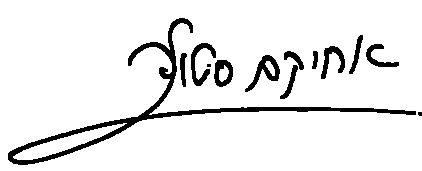 אחיקם סטולר